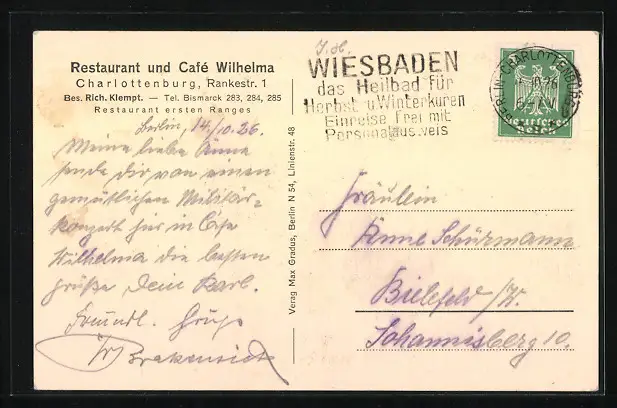 Restaurant und Café Wilhelma
Charlottenburg, Rankestr. 1
Bes. Rich. Klempt. — Tel. Bismarck 283, 284, 285
Restaurant ersten Ranges
Berlin, 14./10.26.
Meine liebe Änne
sende dir von einen
gemütlichen Militär-
konzert hier in Cafe
Wilhelma die besten
Grüße Dein Karl.
Freundl. Grüße
Verag Max Gradus, Berlin N 54, Linienstr. 48
WIESBADEN
das Heilbad für
Herbst u Winterkuren
Einreise frei mit
Personalausweis
BERLIN-CHARLOTTENBURG
Deutsches
Reich
Fräulein
Änne Schürmann
Bielefeld /W.
Johannisberg 10.